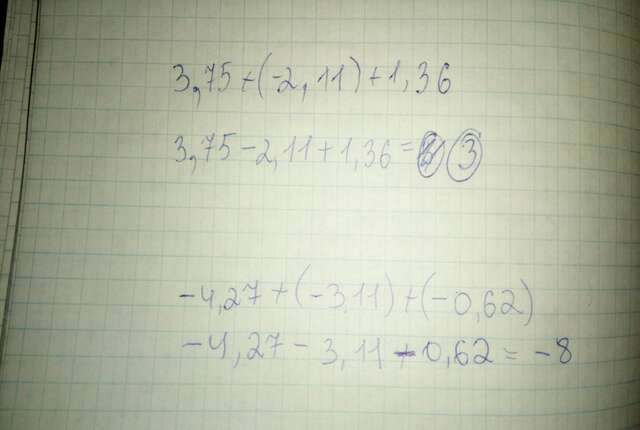 3,75+(-2,11)+1,36
3,75-2,11+1,36=3
-4,27+(-3,11)+(-0,62)
-4,27-3,11-0,62=-8